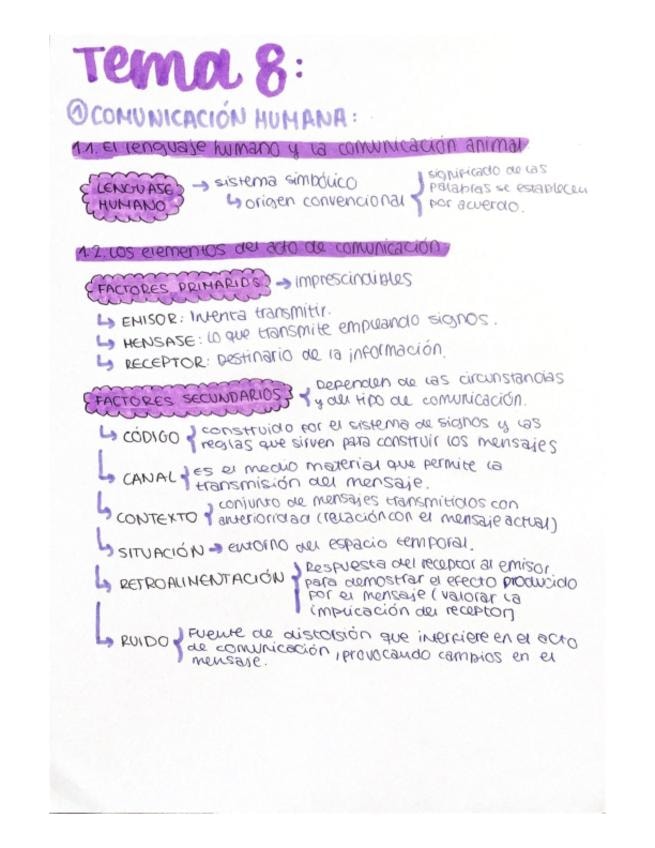 Tema 8:
① COMUNICACIÓN HUMANA:
1.1. El lenguaje humano y la comunicación animal
LENGUAJE HUMANO → sistema simbólico
↳ origen convencional { significado de las palabras se establecen por acuerdo.
1.2. Los elementos del acto de comunicación
FACTORES PRIMARIOS → imprescindibles
↳ EMISOR: Intenta transmitir.
↳ MENSAJE: Lo que transmite empleando signos.
↳ RECEPTOR: Destinario de la información.
FACTORES SECUNDARIOS { Dependen de las circunstancias
y del tipo de comunicación.
↳ CÓDIGO { construido por el sistema de signos y las
reglas que sirven para construir los mensajes
↳ CANAL { es el medio material que permite la
transmisión del mensaje.
↳ CONTEXTO { conjunto de mensajes transmitidos con
anterioridad (relación con el mensaje actual)
↳ SITUACIÓN → entorno del espacio temporal.
↳ RETROALIMENTACIÓN { Respuesta del receptor al emisor
para demostrar el efecto producido
por el mensaje (valorar la
implicación del receptor)
↳ RUIDO { Fuente de distorsión que interfiere en el acto
de comunicación, provocando cambios en el
mensaje.